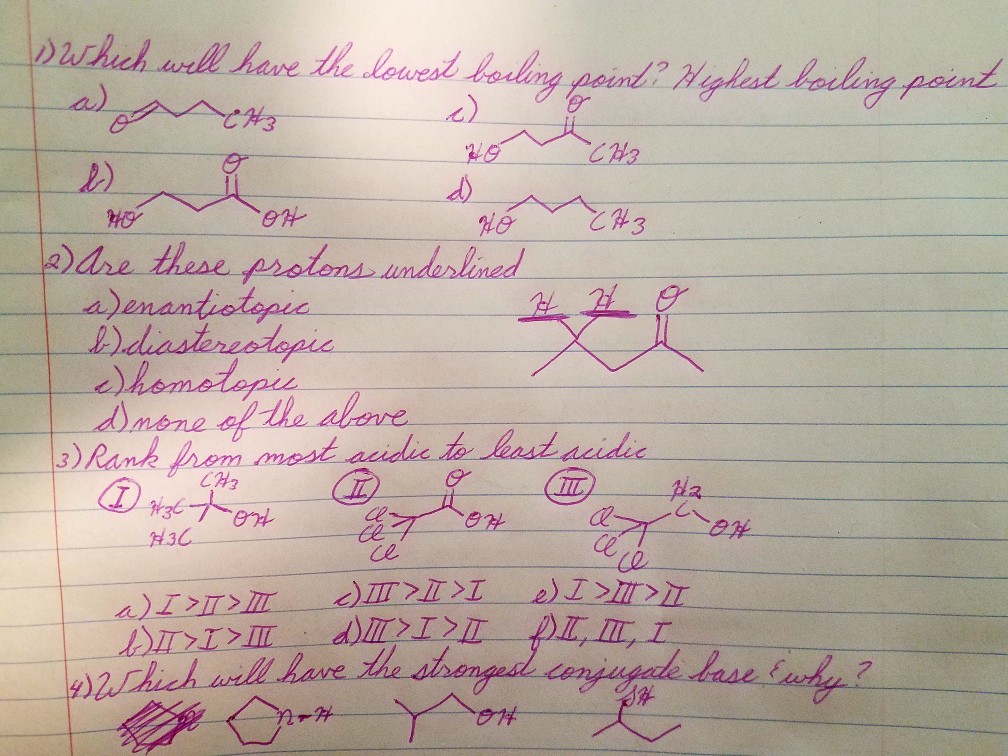 1) Which will have the lowest boiling point? Highest boiling point
a) O CH3 c) O HO CH3
b) O HO OH d) HO CH3
2) Are these protons underlined
a) enantiotopic H H O
b) diastereotopic
c) homotopic
d) none of the above
3) Rank from most acidic to least acidic
I CH3 H3C OH H3C II O Cl Cl Cl OH III H2 C Cl Cl Cl OH
a) I > II > III c) III > II > I e) I > III > II
b) II > I > III d) III > I > II f) II, III, I
4) Which will have the strongest conjugate base & why?
N-H OH SH